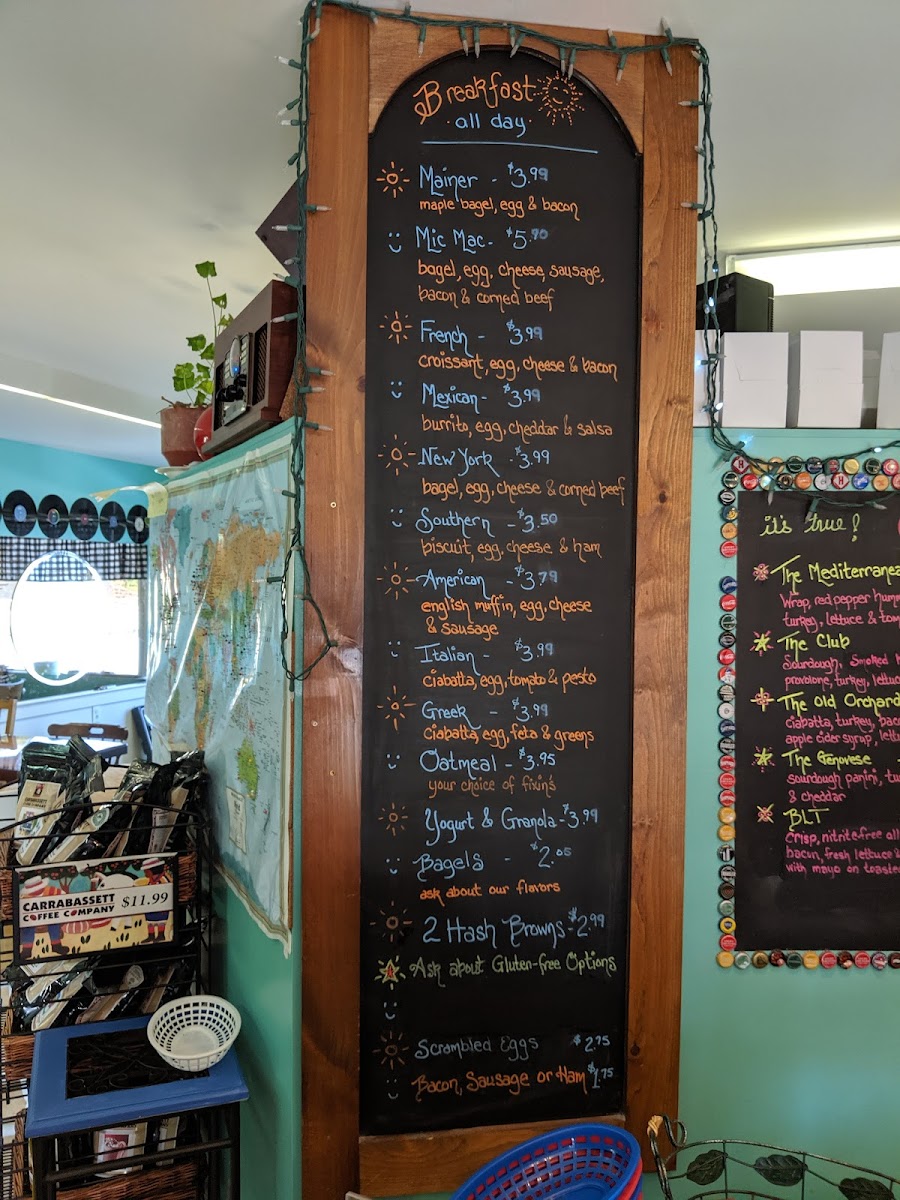 Breakfast
all day
Mainer - $3.99
maple bagel, egg & bacon
Mic Mac - $5.70
bagel, egg, cheese, sausage,
bacon & corned beef
French - $3.99
croissant, egg, cheese & bacon
Mexican - $3.99
burrito, egg, cheddar & salsa
New York - $3.99
bagel, egg, cheese & corned beef
Southern - $3.50
biscuit, egg, cheese & ham
American - $3.79
english muffin, egg, cheese
& sausage
Italian - $3.99
ciabatta, egg, tomato & pesto
Greek - $3.99
ciabatta, egg, feta & greens
Oatmeal - $3.95
your choice of fixin's
Yogurt & Granola - $3.99
Bagels - $2.05
ask about our flavors
2 Hash Browns - $2.99
Ask about Gluten-free Options
Scrambled Eggs $2.75
Bacon, Sausage or Ham $1.75
it's true!
The Mediterranea
Wrap, red pepper humm
turkey, lettuce & tom
The Club
Sourdough, Smoked h
provolone, turkey, lettuc
The Old Orchard
ciabatta, turkey, baco
apple cider syrup, lettu
The Genovese
sourdough panini, tu
& cheddar
BLT
Crisp, nitrite-free all
bacon, fresh lettuce &
with mayo on toasted
CARRABASSETT
COFFEE COMPANY $11.99